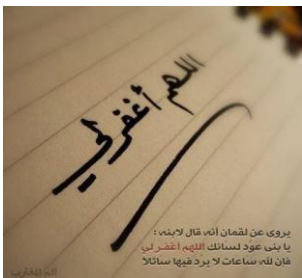 اللهم أغفرلي
يروى عن لقمان أنه قال لابنه :
يا بنى عود لسانك اللهم أغفر لي
فان لله ساعات لا يرد فيها سائلاً